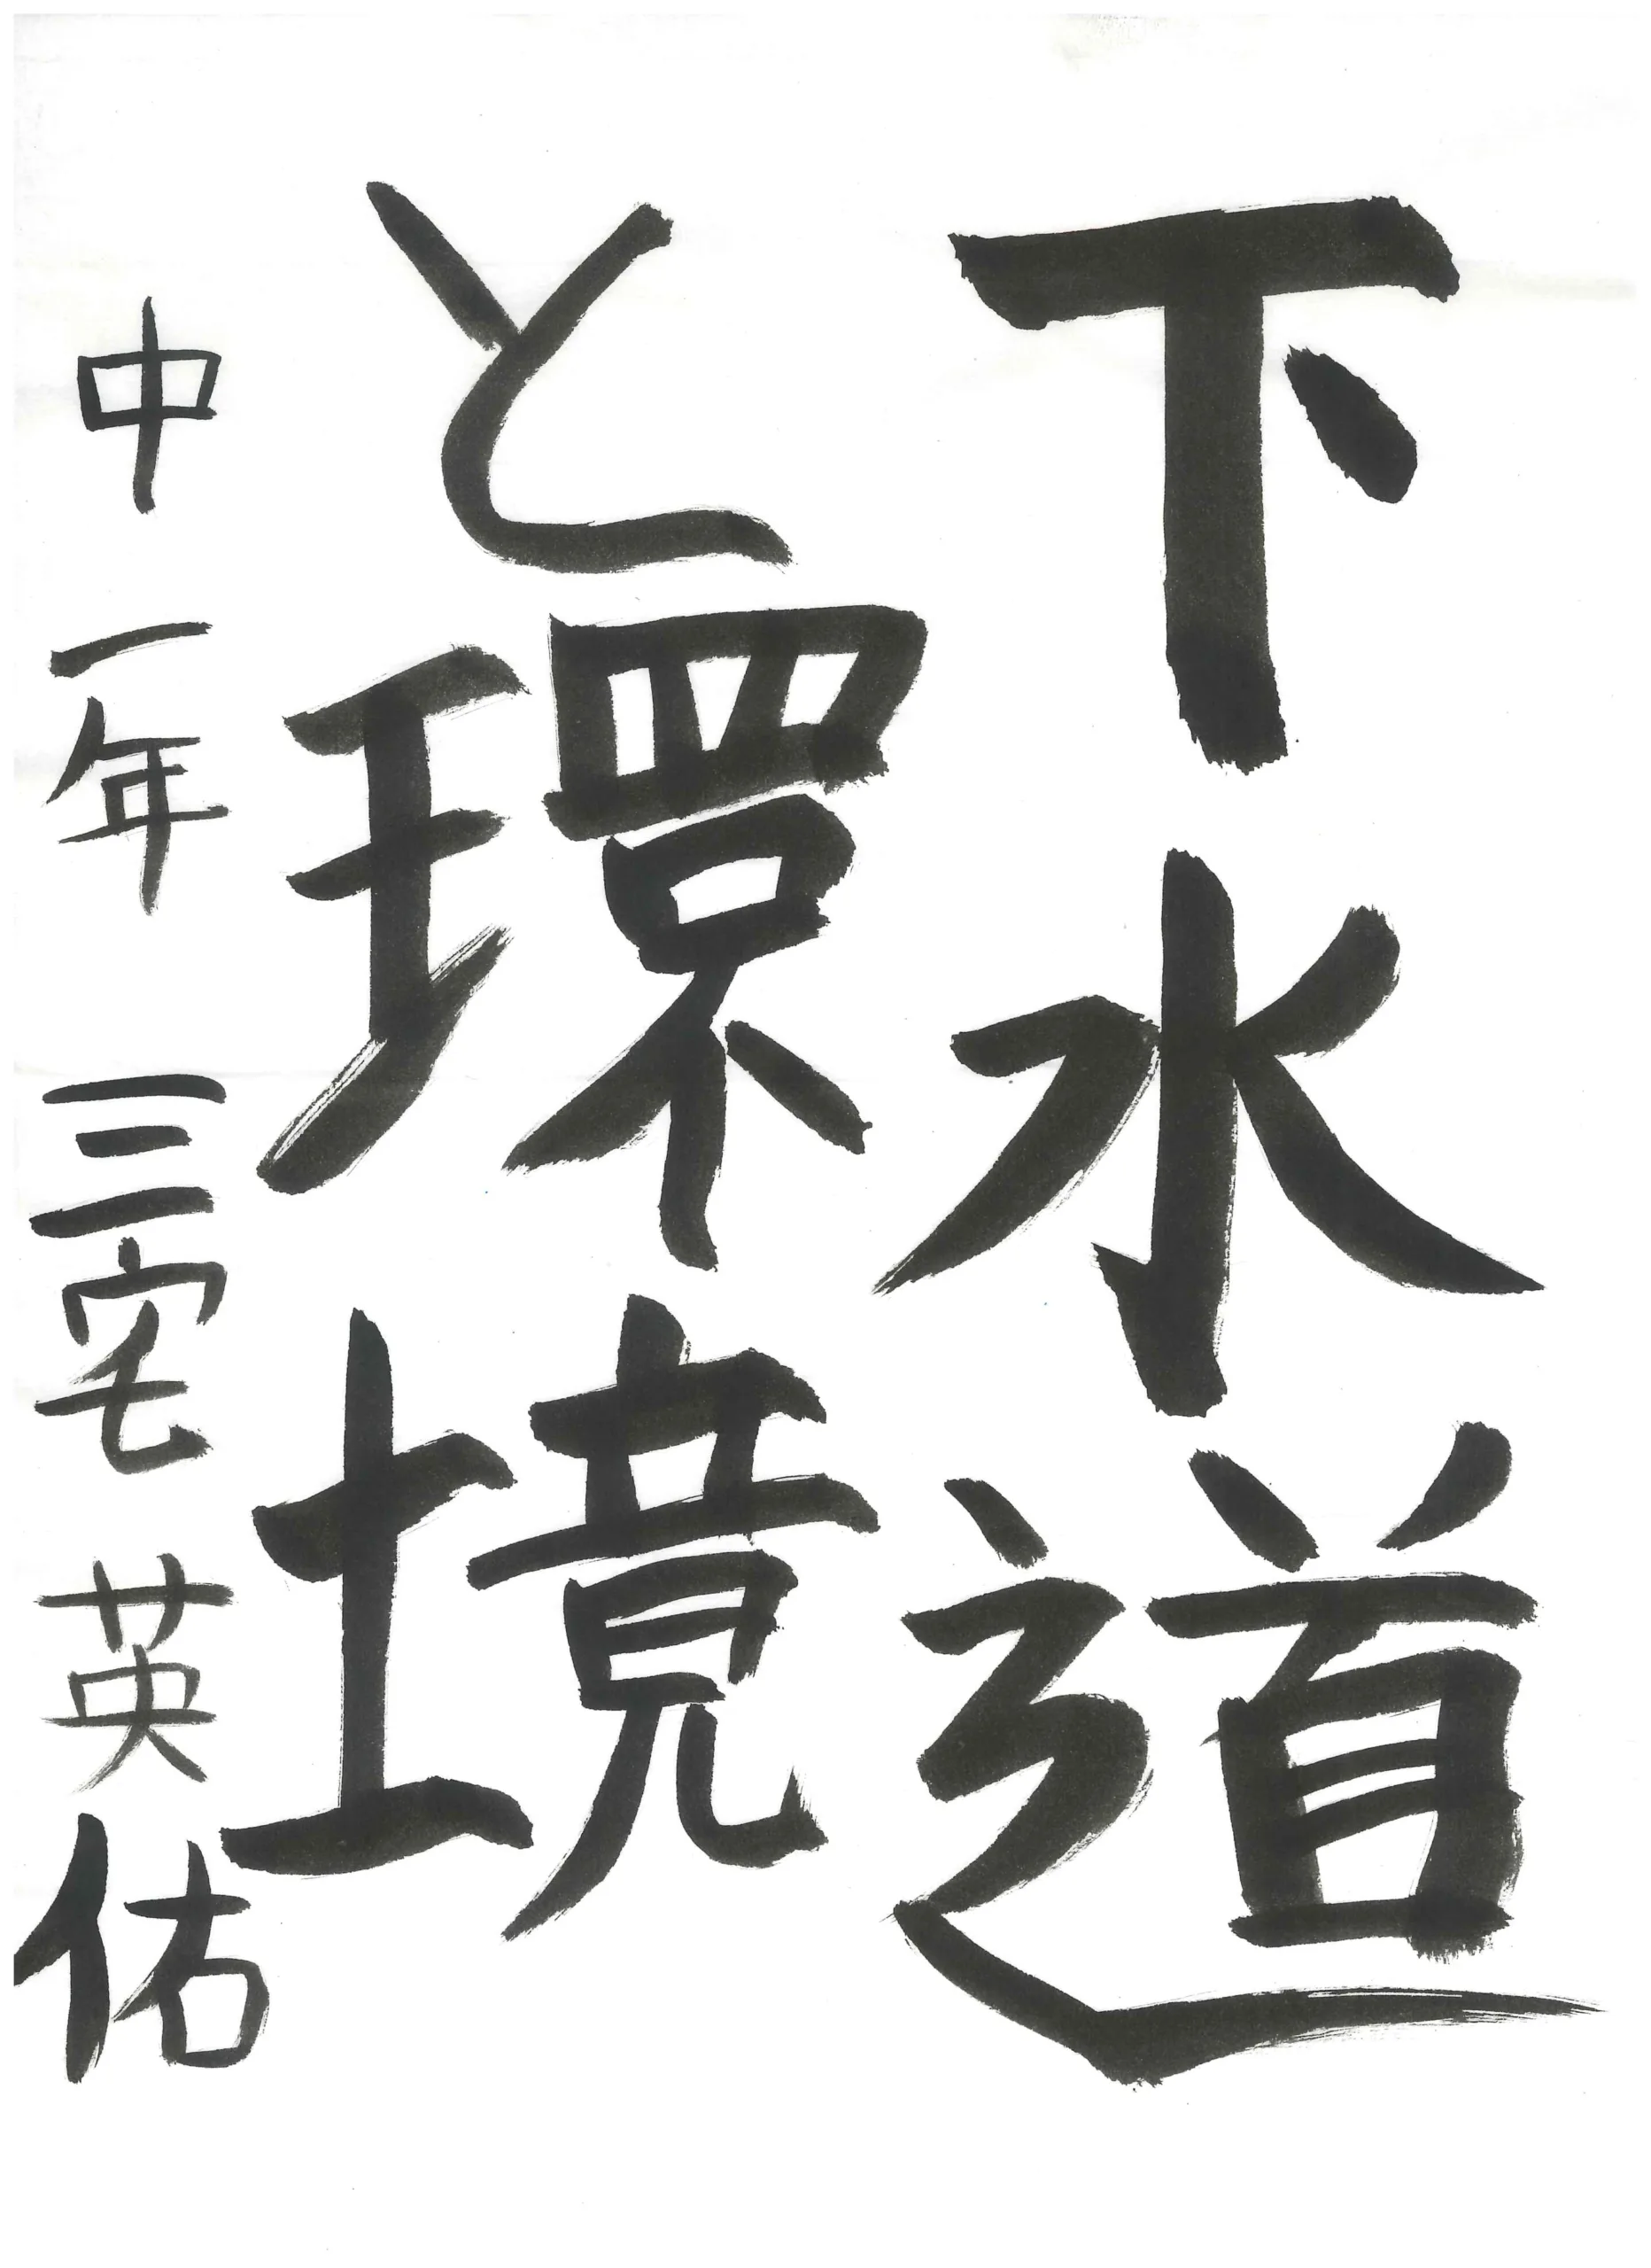 下水道
と環境
中一年 三宅英佑